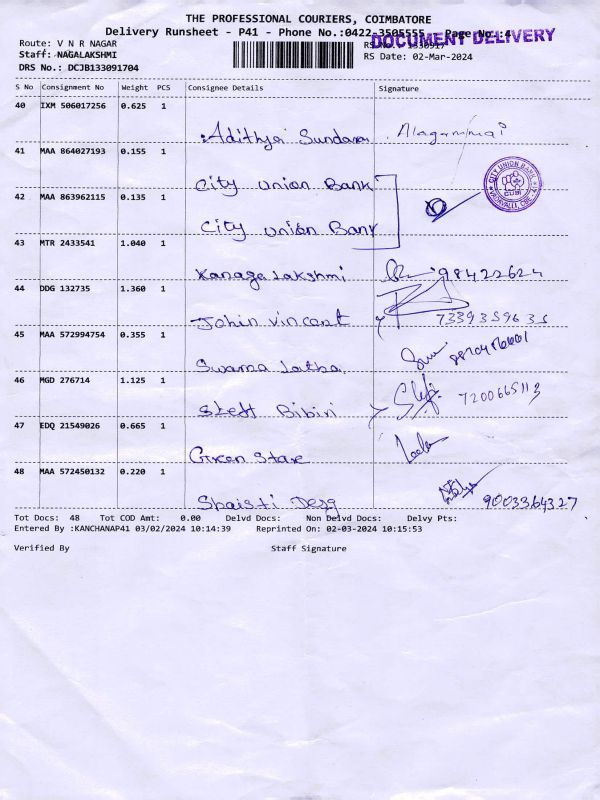 THE PROFESSIONAL COURIERS, COIMBATORE
Delivery Runsheet - P41 - Phone No.:0422-3505555 Page No.:4
DOCUMENT DELIVERY
Route: V N R NAGAR
RS No.: 1330917
Staff: NAGALAKSHMI
RS Date: 02-Mar-2024
DRS No.: DCJB133091704
S No Consignment No Weight PCS Consignee Details Signature
40 IXM 506017256 0.625 1
Adithya Sundaram Alagammai
41 MAA 864027193 0.155 1
City Union Bank
CITY UNION BANK
CUB
42 MAA 863962115 0.135 1
City Union Bank
43 MTR 2433541 1.040 1
Kanaga Lakshmi 98422624
44 DDG 132735 1.360 1
John Vincent 7339359635
45 MAA 572994754 0.355 1
Swarna Latha
46 MGD 276714 1.125 1
Steff Bibin 7200665113
47 EDQ 21549026 0.665 1
Green Stare Leela
48 MAA 572450132 0.220 1
Shaisti Desg 9003364327
Tot Docs: 48 Tot COD Amt: 0.00 Delvd Docs: Non Delvd Docs: Delvy Pts:
Entered By :KANCHANAP41 03/02/2024 10:14:39 Reprinted On: 02-03-2024 10:15:53
Verified By Staff Signature